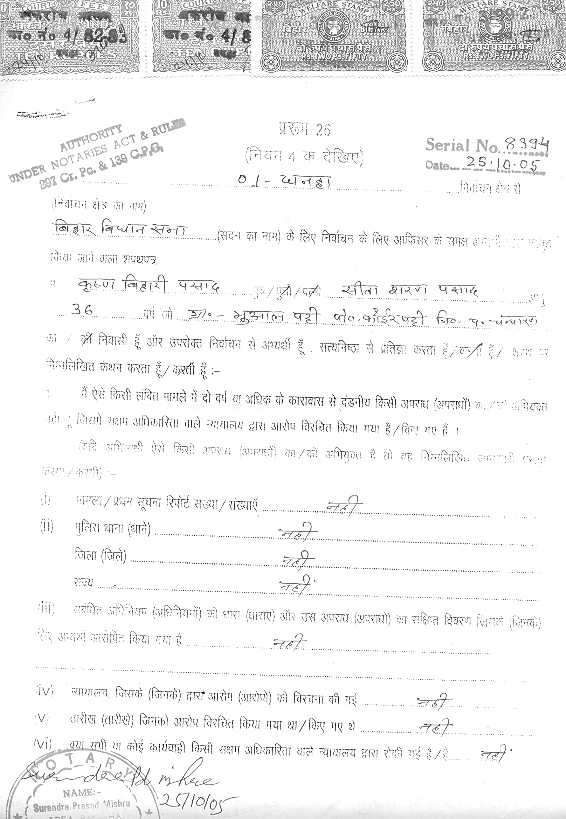 WELFARE STAMP
का० नं० 4/82-83
का० नं० 4/8
प्ररूप 26
AUTHORITY
UNDER NOTARIES ACT & RULES
297 Cr. Pc. & 139 C.P.C.
(नियम 4 क देखिए)
Serial No. 8394
Date 25.10.05
01- धनहा निर्वाचन क्षेत्र से
(निर्वाचन क्षेत्र का नाम)
बिहार विधान सभा (सदन का नाम) के लिए निर्वाचन के लिए आफिसर के समक्ष
किया जाने वाला शपथपत्र
कृष्ण बिहारी प्रसाद पुत्र/पुत्री/पत्नी सीता शरण प्रसाद
36 वर्ष जो ग्रा०- भुआल पट्टी पो० कोईरपट्टी जि० प० चम्पारण
का / की निवासी हूँ और उपरोक्त निर्वाचन से अभ्यर्थी हूँ . सत्यनिष्ठा से प्रतिज्ञा करता हूँ / करती हूँ / शपथ पर
निम्नलिखित कथन करता हूँ / करती हूँ :-
मैं ऐसे किसी लंबित मामले में दो वर्ष या अधिक के कारावास से दंडनीय किसी अपराध (अपराधों) का / की अभियुक्त
नहीं हूँ जिसमें सक्षम अधिकारिता वाले न्यायालय द्वारा आरोप विरचित किया गया है / किए गए हैं ।
(यदि अभिसाक्षी ऐसे किसी अपराध (अपराधों) का / की अभियुक्त है तो वह निम्नलिखित जानकारी प्रदान
करेगा / करेगी) :-
(i) मामला / प्रथम सूचना रिपोर्ट संख्या / संख्याएँ नहीं
(ii) पुलिस थाना (थाने) नहीं
जिला (जिले) नहीं
राज्य नहीं
(iii) संबंधित अधिनियम (अधिनियमों) की धारा (धाराएं) और उस अपराध (अपराधों) का संक्षिप्त विवरण जिसके (जिनके)
लिए अभ्यर्थी आरोपित किया गया है नहीं
(iv) न्यायालय जिसके (जिनके) द्वारा आरोप (आरोपों) की विरचना की गई नहीं
(v) तारीख (तारीखें) जिनको आरोप विरचित किया गया था / किए गए थे नहीं
(vi) क्या सभी या कोई कार्यवाही किसी सक्षम अधिकारिता वाले न्यायालय द्वारा रोकी गई है / हैं नहीं
NOTARY
NAME:-
Surendra Prasad Mishra
25/10/05